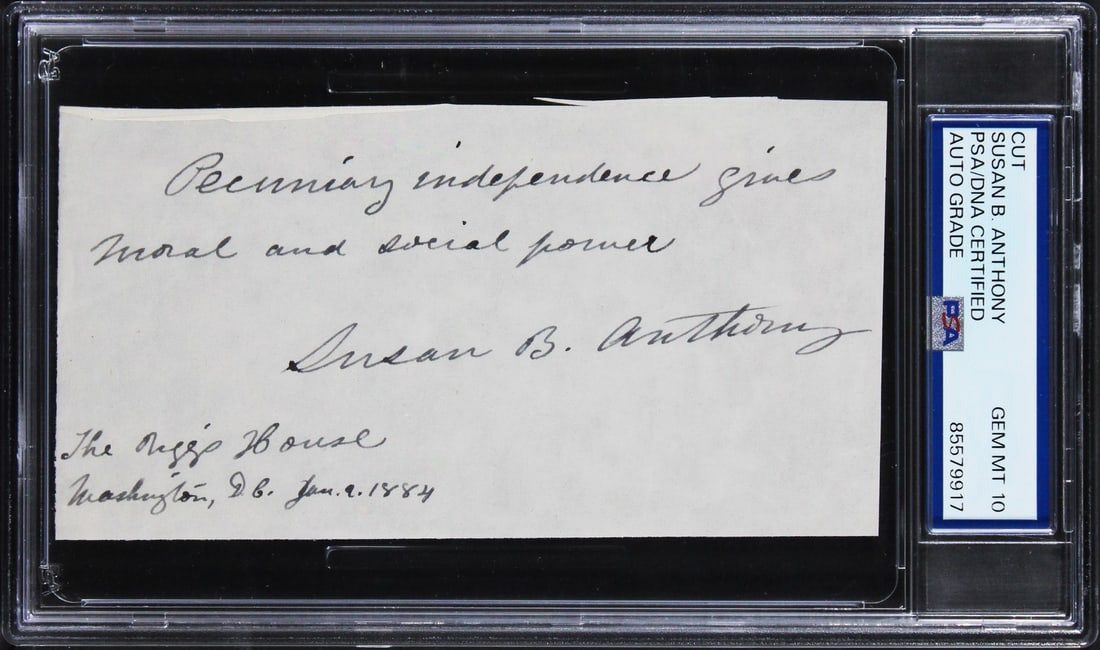 Pecuniary independence gives
moral and social power
Susan B. Anthony
The Riggs House
Washington, D.C. Jan. 9. 1884
CUT
SUSAN B. ANTHONY
PSA/DNA CERTIFIED
AUTO GRADE
PSA
GEM MT 10
85579917